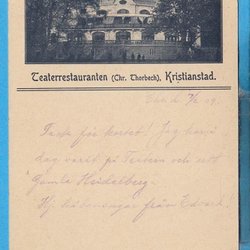 Teaterrestauranten (Chr. Thorbech), Kristianstad.
Tack för kortet! Jag har i
dag varit på Teatern och sett
"Gamla Heidelberg"
Hj. från Edvard.